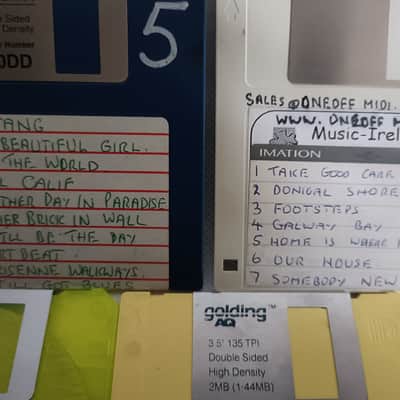 Sided
Density
Number
DD
5
TANG
BEAUTIFUL GIRL.
THE WORLD
CALIF
THER DAY IN PARADISE
HER BRICK IN WALL
BE THE DAY
BEAT.
WALKWAYS.
GOT BLUES
SALES @ ONEOFF MIDI.
WWW. ONEOFF M
Music-Irel
IMATION
1 TAKE GOOD CARE
2 DONIGAL SHORE
3 FOOTSTEPS
4 GALWAY BAY
5 HOME IS WHERE
6 OUR HOUSE
7 SOMEBODY NEW
golding™
AQ
3.5" 135 TPI
Double Sided
High Density
2MB (1·44MB)